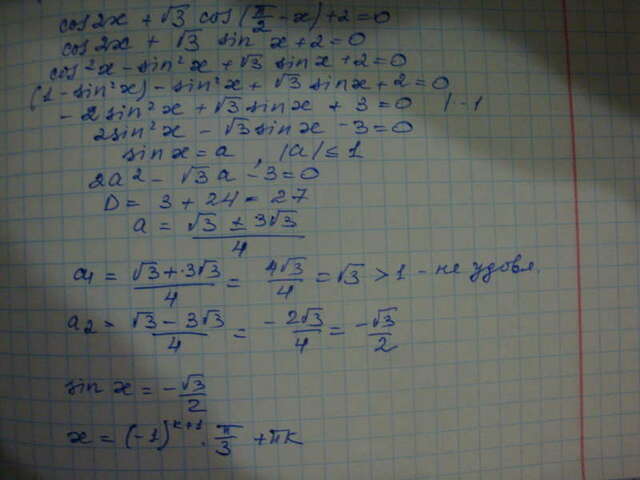 cos2x + √3 cos(π/2 - x) + 2 = 0
cos2x + √3 sin x + 2 = 0
cos²x - sin²x + √3 sin x + 2 = 0
(1 - sin²x) - sin²x + √3 sin x + 2 = 0
- 2 sin²x + √3 sin x + 3 = 0 | · -1
2sin²x - √3 sin x - 3 = 0
sin x = a , |a| ≤ 1
2a² - √3 a - 3 = 0
D = 3 + 24 = 27
a = (√3 ± 3√3)/4
a₁ = (√3 + 3√3)/4 = 4√3/4 = √3 > 1 - не удовл.
a₂ = (√3 - 3√3)/4 = -2√3/4 = -√3/2
sin x = -√3/2
x = (-1)ᵏ⁺¹ · π/3 + πk